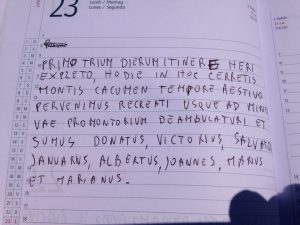 23
Lundi / Montag
Lunes / Segunda
PRIMO TRIUM DIERUM ITINERE HERI
EXPLETO, HODIE IN HOC CERRETIS
MONTIS CACUMEN TEMPORE AESTIVO
PERVENIMUS RECREATI USQUE AD MINER
VAE PROMONTORIUM DEAMBULATURI ET
SUMUS DONATUS, VICTORIUS, SALVATOR
JANUARUS, ALBERTUS, JOANNES, MARIUS
ET MARIANUS.